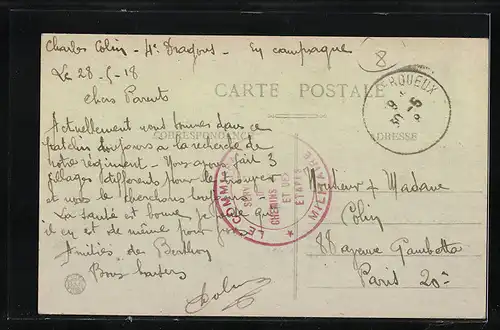 Charles Colin - 4e Dragons - En campagne
8
Le 28-5-18
CARTE POSTALE
SERQUEUX
Chers Parents
CORRESPONDANCE
ADRESSE
Actuellement nous sommes dans ce
patelin toujours à la recherche de
notre régiment - Nous avons fait 3
villages différents pour le trouver
et nous le cherchons toujours.
La santé est bonne je pense qu'
il en est de même pour
Amitiés de Berthon
Bons baisers
Colin
CHEMINS
ET DES
ETAPES
MILITAIRE
Monsieur & Madame
Colin
88 avenue Gambetta
Paris 20e